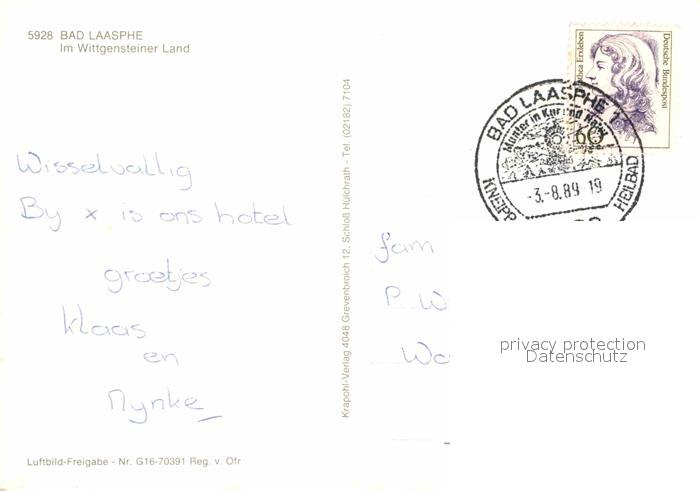 5928 BAD LAASPHE
Im Wittgensteiner Land
Wisselvallig
By x is ons hotel
groetjes
Klaas
en
Nynke
Luftbild-Freigabe - Nr. G16-70391 Reg. v. Ofr
Krapohl-Verlag 4048 Grevenbroich 12, Schloß Hülchrath - Tel. (02182) 7104
Deutsche Bundespost
60
BAD LAASPHE 1
Munter in Kur und
-3.-8.89 19
KNEIPP
HEILBAD
fam
P. W
Wo
privacy protection
Datenschutz